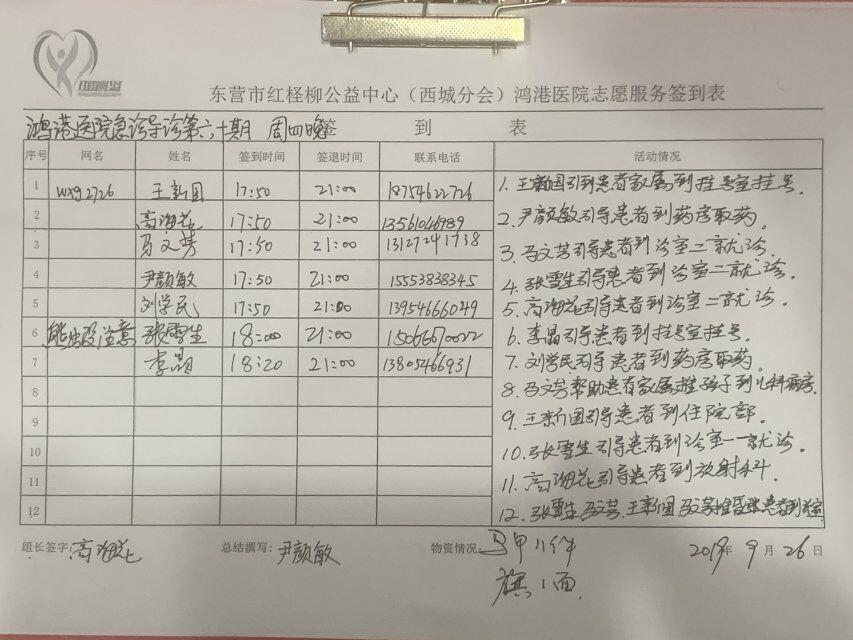 东营市红柽柳公益中心（西城分会）鸿港医院志愿服务签到表
鸿港医院急诊导诊第六十期 周四晚 签 到 表
序号 网名 姓名 签到时间 签退时间 联系电话 活动情况
1 wxg2726 王新国 17:50 21:00 18754622726
2 高海花 17:50 21:00 13561046989
3 马文芳 17:50 21:00 13127241738
4 尹颜敏 17:50 21:00 15553838345
5 刘学民 17:50 21:00 13954666049
6 熊出没注意 张雪生 18:00 21:00 15066670022
7 李晶 18:20 21:00 13805466931
8
9
10
11
12
1. 王新国引到患者家属到挂号室挂号.
2. 尹颜敏引导患者到药房取药.
3. 马文芳引导患者到诊室二就诊.
4. 张雪生引导患者到诊室二就诊.
5. 高海花引导患者到诊室二就诊.
6. 李晶引导患者到挂号室挂号.
7. 刘学民引导患者到药房取药.
8. 马文芳帮助患者家属推孩子到儿科病房.
9. 王新国引导患者到住院部.
10. 张雪生引导患者到诊室一就诊.
11. 高海花引导患者到放射科.
12. 张雪生.马文芳.王新国.马文芳推昏迷患者到诊室
组长签字: 高海花 总结撰写: 尹颜敏 物资情况: 马甲11件 2019年 9 月 26 日
旗1面.